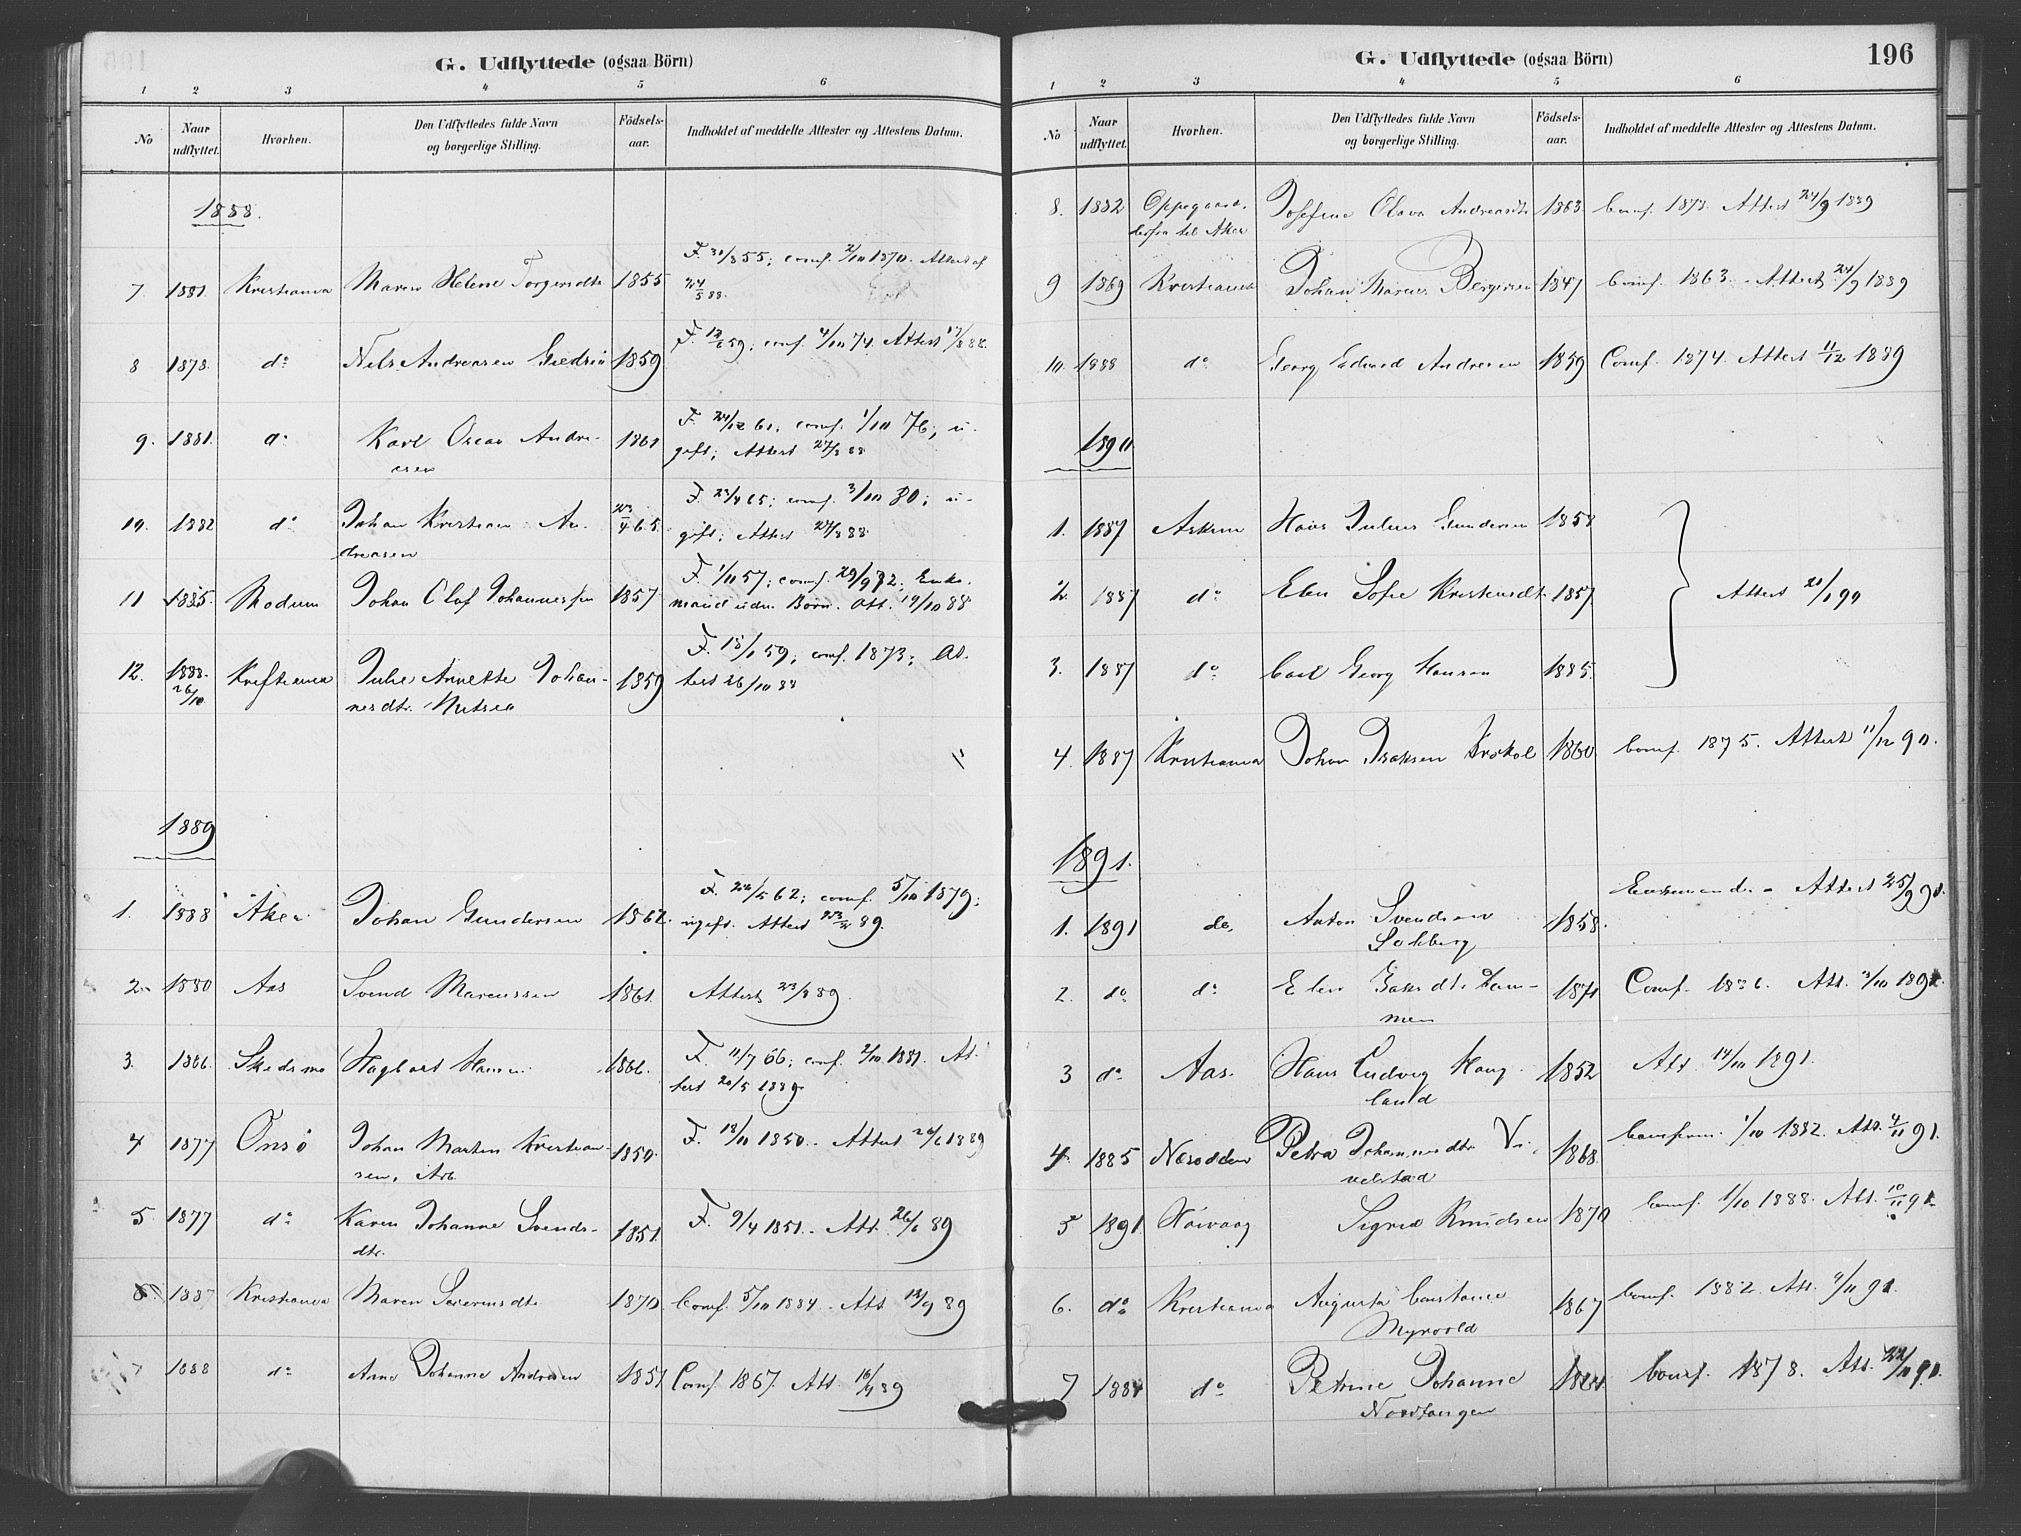 G. Udflyttede (ogsaa Börn)
1 2 3 4 5 6
No Naar udflyttet. Hvorhen. Den Udflyttedes fulde Navn og borgerlige Stilling. Födsels-aar. Indholdet af meddelte Attester og Attestens Datum.
1888.
7. 1881 Kristiania Maren Helene Torgersdtr 1855 F. 30/8 55; conf. 2/10 1870. Attest af
24/5 88.
8 1878. do Nils Andreasen 1859 F. 12/6 59; conf. 4/10 74. Attest 17/8 88.
9. 1881. do Karl Oscar Andre- 1861 F. 24/12 61; conf. 1/10 76; u-
asen gift; Attest 27/8 88
10. 1882 do Johan Kristian An- 23/4 65. F. 23/4 65; conf. 3/10 80; u-
dreasen gift; Attest 27/8 88
11 1885. Modum Johan Olaf Johannessen 1857 F. 1/11 57; conf. 29/9 72; Enke-
mand uden Børn. Att. 19/10 88
12. 1888. 26/10 Kristiania Julie Annette Johan- 1859 F. 18/1 59; conf. 1873; At-
nesdtr. test 26/10 88
1889
1. 1888 Aker Johan Gundersen 1862. F. 22/5 62; conf. 5/10 1879;
ugift. Attest 89.
2. 1880 Aas Svend Marcussen 1861. Attest 23/3 89.
3. 1886. Skedsmo Hagbart Hansen 1866. F. 11/7 66; conf. 2/10 1881. At-
test 20/5 1889
4 1877 Onsø Johan Martin Kristian- 1850. F. 18/11 1850. Attest 26/6 1889
sen, Arb.
5 1877 do Karen Johanne Svends- 1851. F. 9/4 1851. Att. 26/6 89
dtr.
6. 1887 Kristiania Maren Severinsdtr. 1870 Conf. 5/10 1884. Att 13/9 89
7 1888 do Anne Johanne Andresen 1851 Conf. 1867. Att. 89
G. Udflyttede (ogsaa Börn) 196
1 2 3 4 5 6
No Naar udflyttet. Hvorhen. Den Udflyttedes fulde Navn og borgerlige Stilling. Födsels-aar. Indholdet af meddelte Attester og Attestens Datum.
8. 1882 Oppegaard, Josefine Olava Andreasdtr 1863. Conf. 1878. Attest 24/9 1889
derfra til Aker
9 1869 Kristiania Johan Marius Bergersen 1847 Conf. 1863. Attest 24/9 1889
10. 1888 do Georg Edvard Andresen 1859 Conf. 1874. Attest 11/12 1889
1890
1. 1887 Askim Hans Julius Gundersen 1858
2. 1887 do Elen Sofie Kristensdtr 1857 Attest 20/1 90
3. 1887 do Carl Georg Hansen 1885.
4. 1887 Kristiania Johan Isaksen 1860. Conf. 1875. Attest 11/12 90.
1891.
1. 1891 do. Anton Svendsen 1858. Attest 25/2 91.
Solberg
2. do do Elen 1871 Conf. 1886. Att. 3/10 1891.
men
3 do Aas. Hans Ludvig Haug- 1852 Att. 14/10 1891.
land
4. 1885 Nesodden Petra Johannesdtr Vi- 1868. Confirm. 1/10 1882. Att. 4/11 91.
nelstad
5 1891. Høivaag Sigrid Knudsen 1870 Conf. 1/10 1888. Att. 10/11 91.
6. do Kristiania Augusta Constance 1867 Conf. 1882. Att. 91.
Myrvold
7 1884 do Petrine Johanne 1864. Conf. 1878. Att. 22/11 91.
Nordtangen